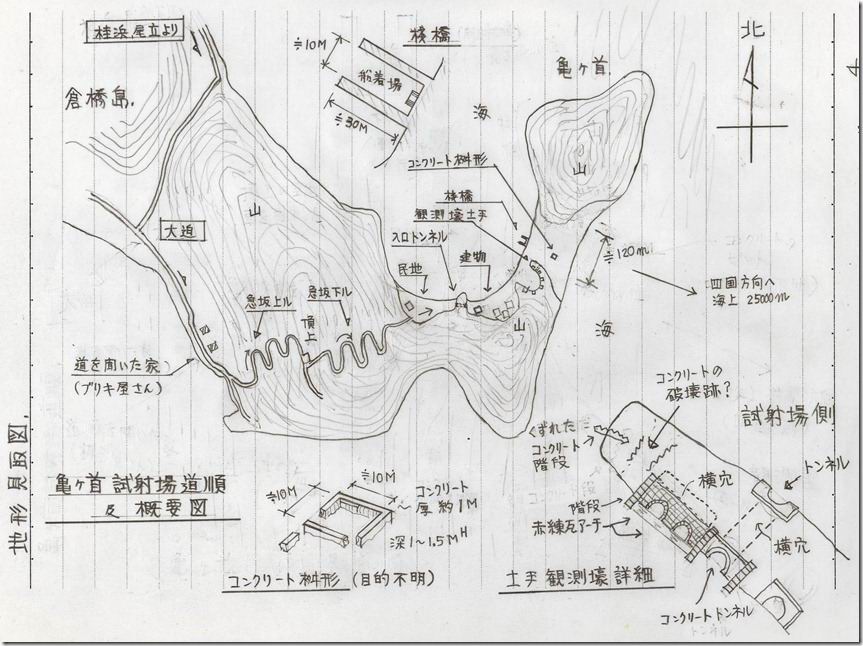 桂浜尾立より
倉橋島.
≒10M
桟橋
船着場
≒30M
海
亀ヶ首.
北
4
山
コンクリート桝形
桟橋
観測壕土手
入口トンネル
民地
建物
山
≒120m
四国方向へ
海上 25000m
大迫
急坂上ル
急坂下ル
頂上
山
海
道を聞いた家
(ブリキ屋さん)
コンクリートの
破壊跡?
試射場側
くずれた
コンクリート
階段
横穴
トンネル
階段
赤練瓦アーチ
横穴
コンクリートトンネル
トンネル
土手観測壕詳細
地形見取図.
亀ヶ首試射場道順
及 概要図
≒10M
≒10M
コンクリート
厚約1M
深1~1.5MH
コンクリート桝形(目的不明)